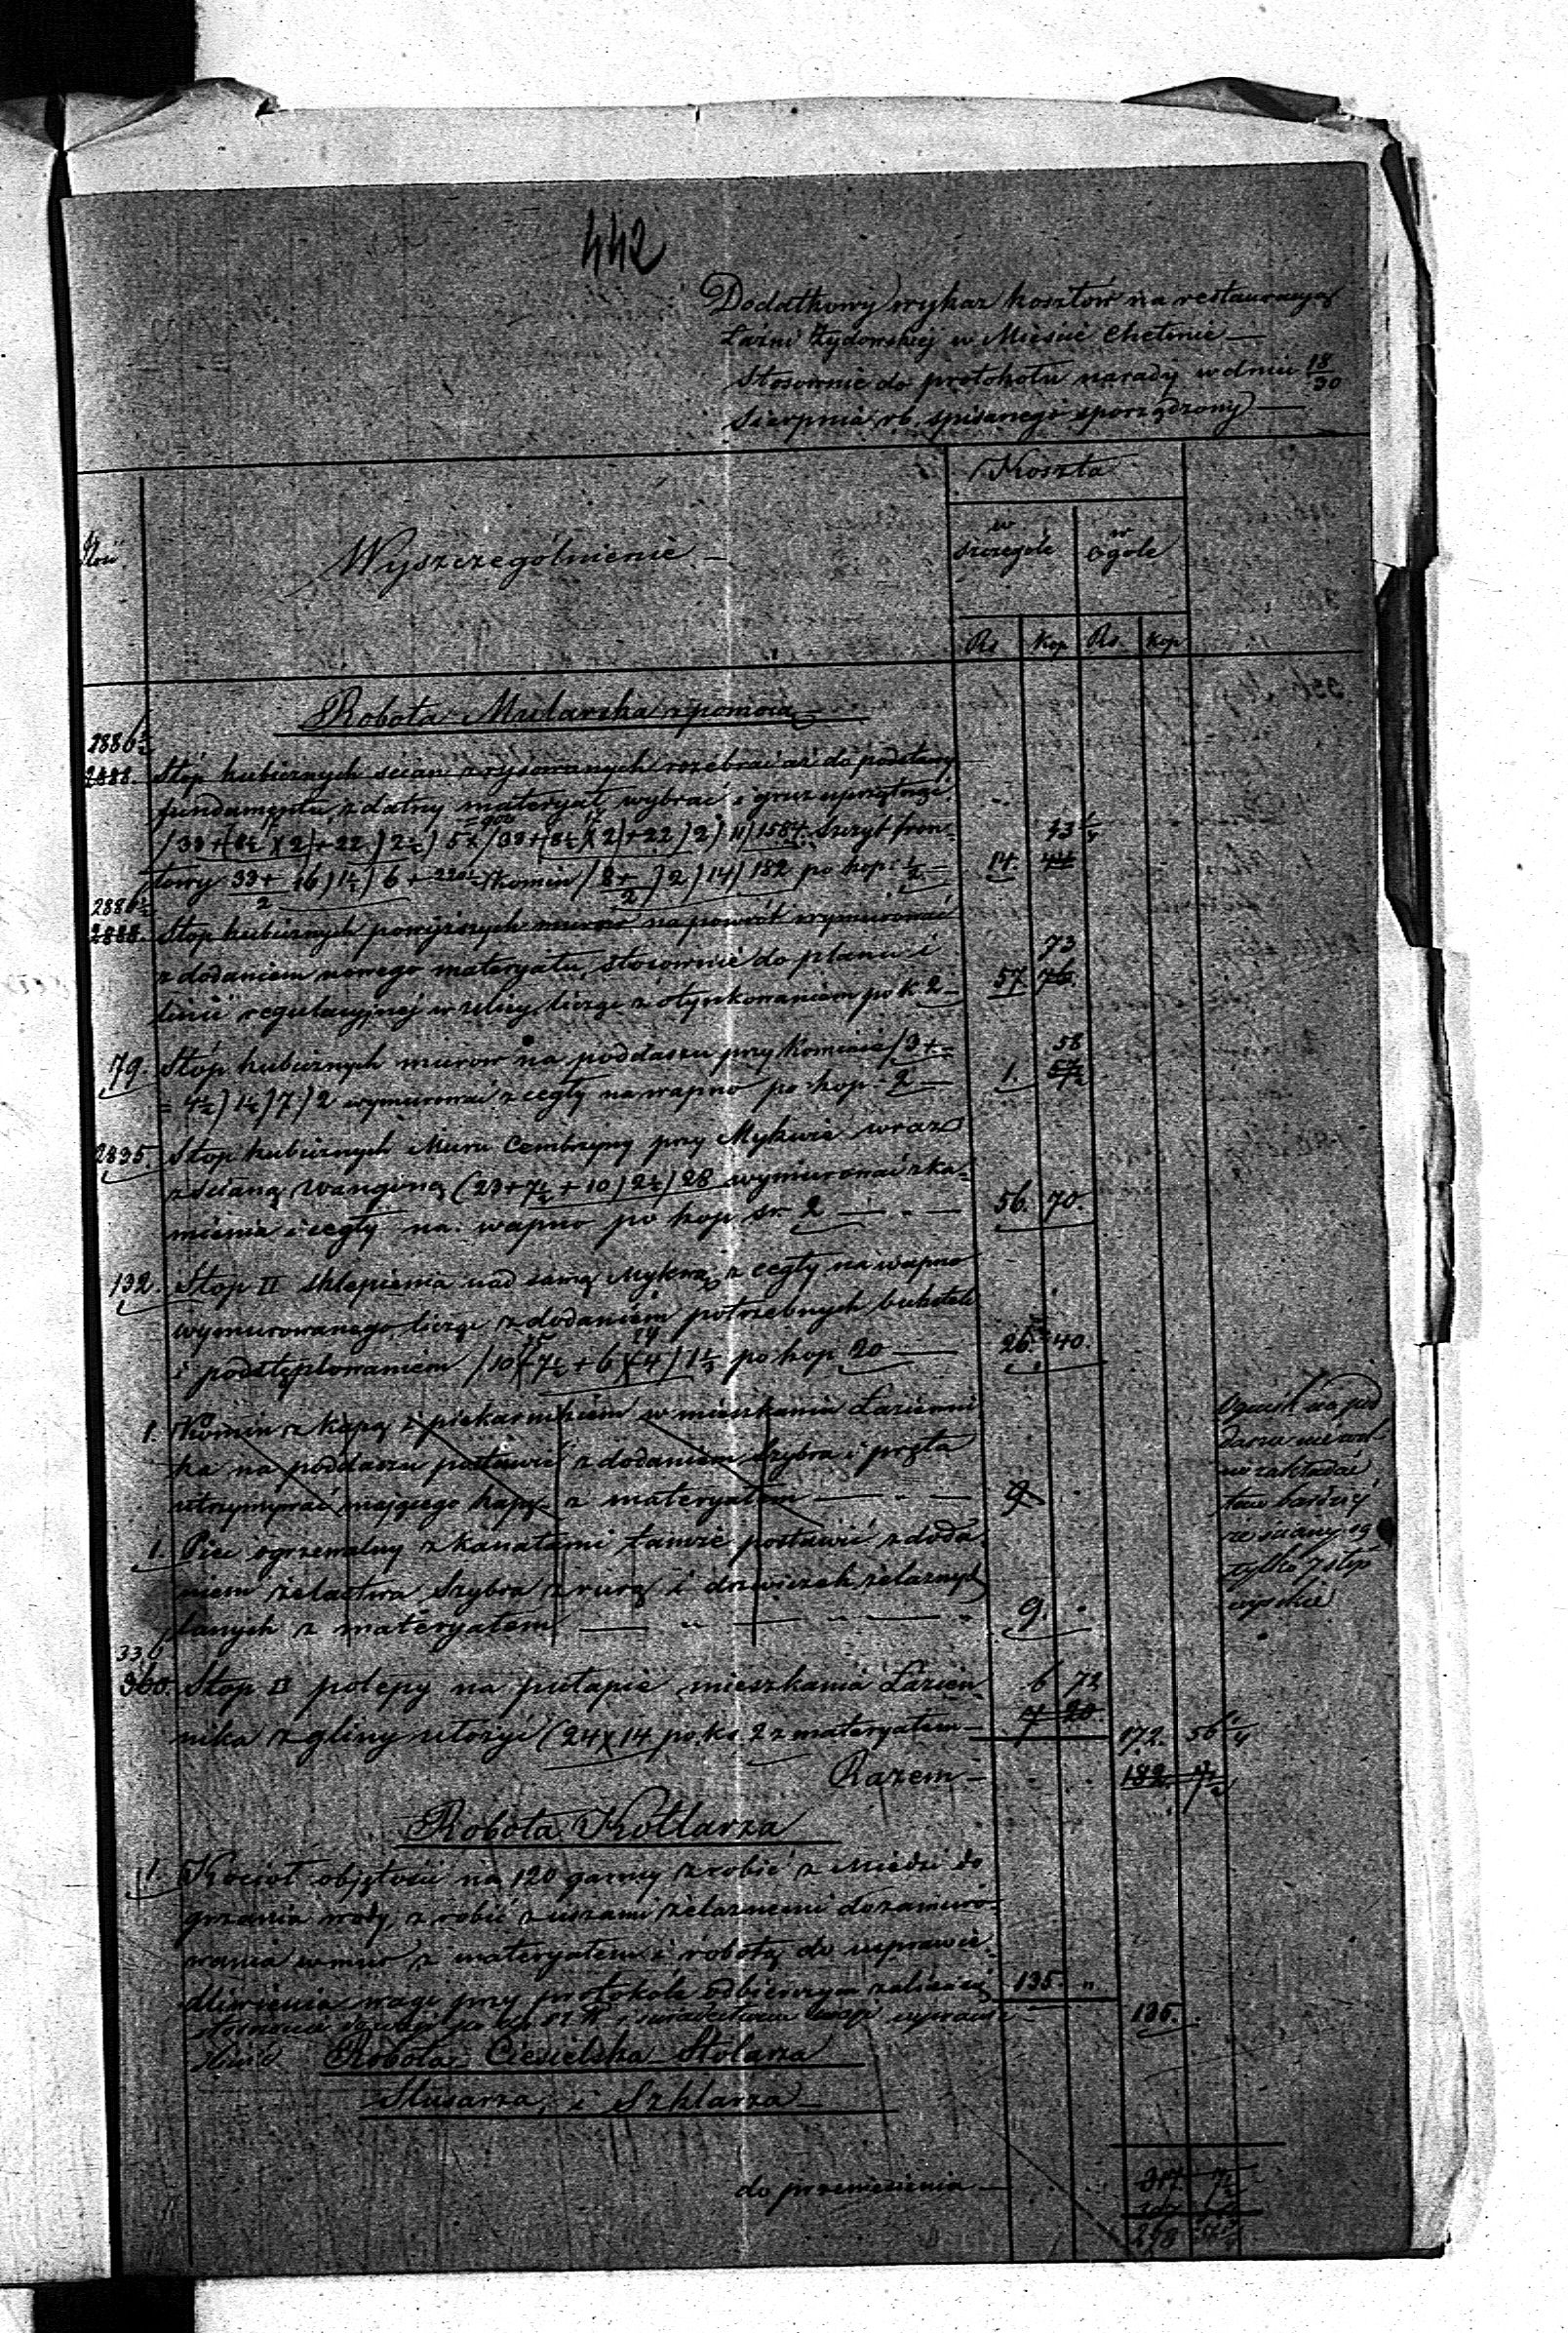 442
Dodatkowy wykaz kosztów na restauracyą
Łaźni Żydowskiej w Mieście Chełmie —
Stosownie do protokołu narady w dniu 18/30
Sierpnia rb. spisanego sporządzony —
Ilość
Wyszczególnienie —
Koszta
w szczególe
w ogóle
Rs Kop Rs Kop
Robota Mularska z pomocą
2886½
2888. Stóp kubicznych ścian zrysowanych rozebrać aż do podstawy
fundamentu, zdatny materyał wybrać i gruz uprzątnąć
/33+(8½×2)+22)2½)5×/33+(8½×2)+22)2)11)1584. Szczyt fron-
43¼
towy 33+ 16)1½)6+ Komin /8+ )2)14)182 po kop: ½ — 14. 44
2886½
2888. Stóp kubicznych powyższych murów na powrót wymurować
z dodaniem nowego materyału, stosownie do planu i
73
linii regulacyjnej w ulicy, licząc z otynkowaniem po k 2 — 57. 76.
79. Stóp kubicznych murów na poddaszu przy Kominie /3+
58
= 4½)1½)7)2 wymurować z cegły na wapno po kop - 2 — 1. 57½
2835. Stóp kubicznych Muru Cembrzyny przy Mykwie wraz
z ścianą (23+7½+10)2½)28 wymurować z ka-
mienia i cegły na wapno po kop sr. 2 — " — 56. 70.
132. Stóp □ sklepienia nad samą Mykwą z cegły na wapno
wymurowanego, licząc z dodaniem potrzebnych buksteli
i podstęplowaniem /10×7½+6×4)1⅓ po kop 20 — 26. 40.
1. Komin z kapą i piekarnikiem w mieszkaniu Łazienni
ka na poddaszu postawić z dodaniem Szybra i pręta
utrzymywać mającego kapę z materyałem — " — 9.
Ognisk na pod
daszu nie wol
no zakładać
tem bardziej
że ściany są
tylko 7 stóp
wysokie
1. Piec ogrzewalny z kanałami tamże postawić z doda-
niem żelastwa Szybra z rurą i drzwiczek żelaznych
lanych z materyałem — " — " — " 9.
336
360. Stóp □ polepy na pułapie mieszkania Łazien- 6 72
nika z gliny ułożyć (24×14 po k. 2 z materyałem — 7 20
172. 56¼
Razem — 182. 7½
Robota Kotlarza
1. Kocioł objętości na 120 garncy zrobić z Miedzi do
grzania wody, zrobić z uszami żelaznemi do zamuro-
wania w mur z materyałem i robotą do uprawie-
dliwienia wagi przy protokóle odbiorczym zaliczaci 135. "
135.
Robota Ciesielska Stolarza
Ślusarza, i Szklarza —
do przeniesienia — 317. 7½